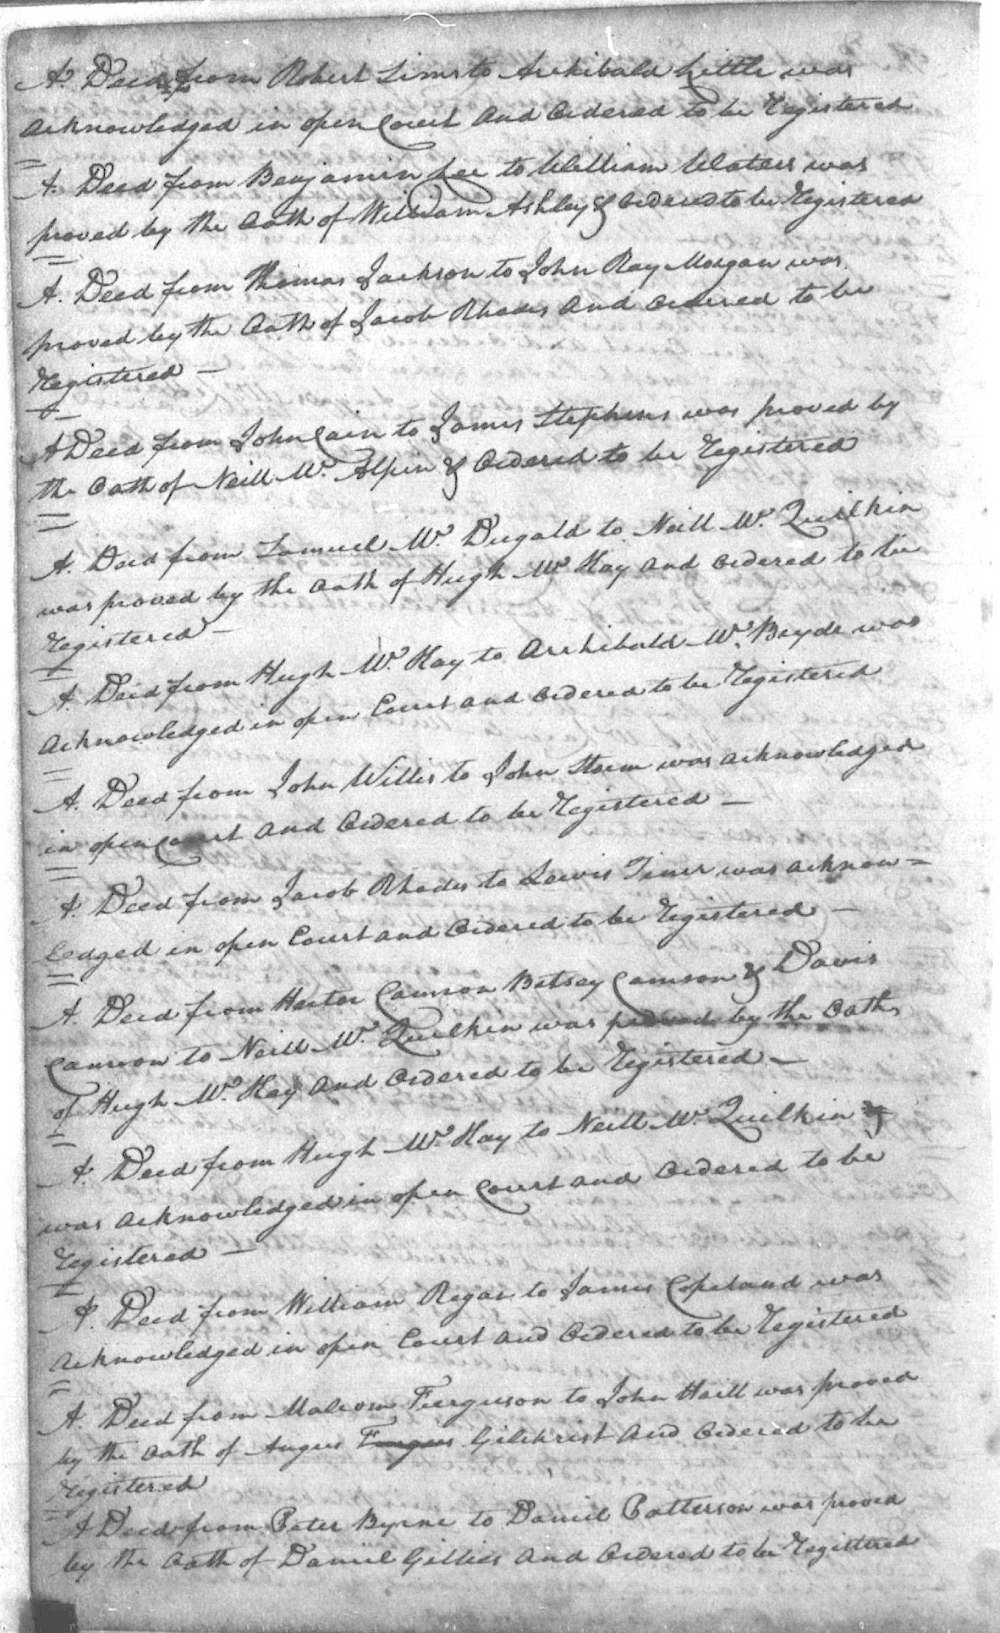 A. Deed from Robert Sims to Archibald Little was
acknowledged in open Court and Ordered to be Registered
A. Deed from Benjamin Lee to William Waters was
proved by the Oath of William Ashley & Ordered to be Registered
A. Deed from Thomas Jackson to John Ray Morgan was
proved by the Oath of Jacob Rhodes and Ordered to be
Registered —
A Deed from John Cain to James Stephens was proved by
the Oath of Neill Mc. Alpin & Ordered to be Registered
A. Deed from Samuel Mc. Dugald to Neill Mc. Quilkin
was proved by the Oath of Hugh Mc Kay and Ordered to be
Registered —
A. Deed from Hugh Mc. Kay to Archibald Mc. Bryde was
acknowledged in open Court and Ordered to be Registered
A. Deed from John Willis to John Storm was acknowledged
in open Court and Ordered to be Registered —
A. Deed from Jacob Rhodes to Lewis Tiner was acknow =
ledged in open Court and Ordered to be Registered —
A. Deed from Hector Camron Betsey Camron & Davis
Camron to Neill Mc. Quilkin was proved by the Oath
of Hugh Mc. Kay and Ordered to be Registered —
A. Deed from Hugh Mc. Kay to Neill Mc. Quilkin &
was acknowledged in open Court and Ordered to be
Registered —
A. Deed from William Regas to James Copeland was
acknowledged in open Court and Ordered to be Registered
A. Deed from Malcom Fierguson to John Haill was proved
by the Oath of Angus Gilchrist and Ordered to be
Registered
A Deed from Peter Byrne to Daniel Patterson was proved
by the Oath of Daniel Gillies and Ordered to be Registered